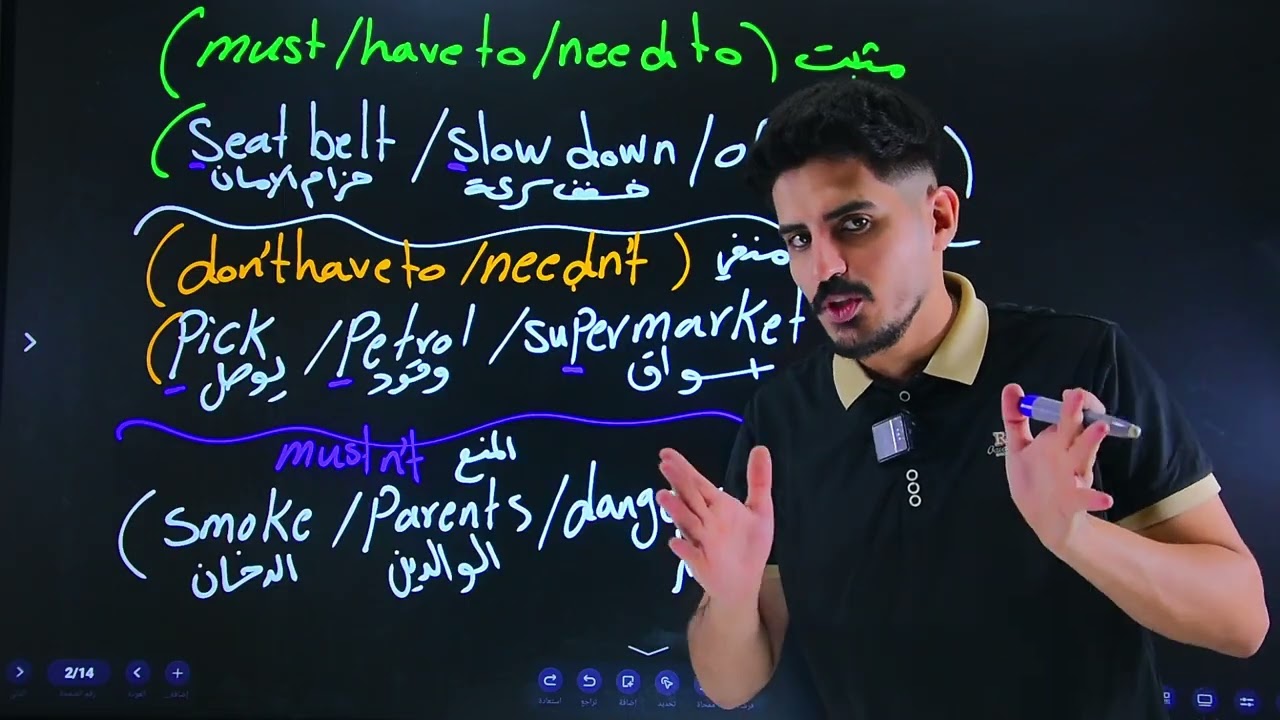 (must/have to/need to) مثبت
(Seat belt /slow down /o
حزام الامان خفف سرعة
(don't have to /needn't) منفي
(Pick /Petrol /supermarket
يوصل وقود سواق
mustn't المنع
(smoke /Parents /dange
الدخان الوالدين
2/14
رقم الصفحة العودة
استعادة تراجع اضافة تحديد